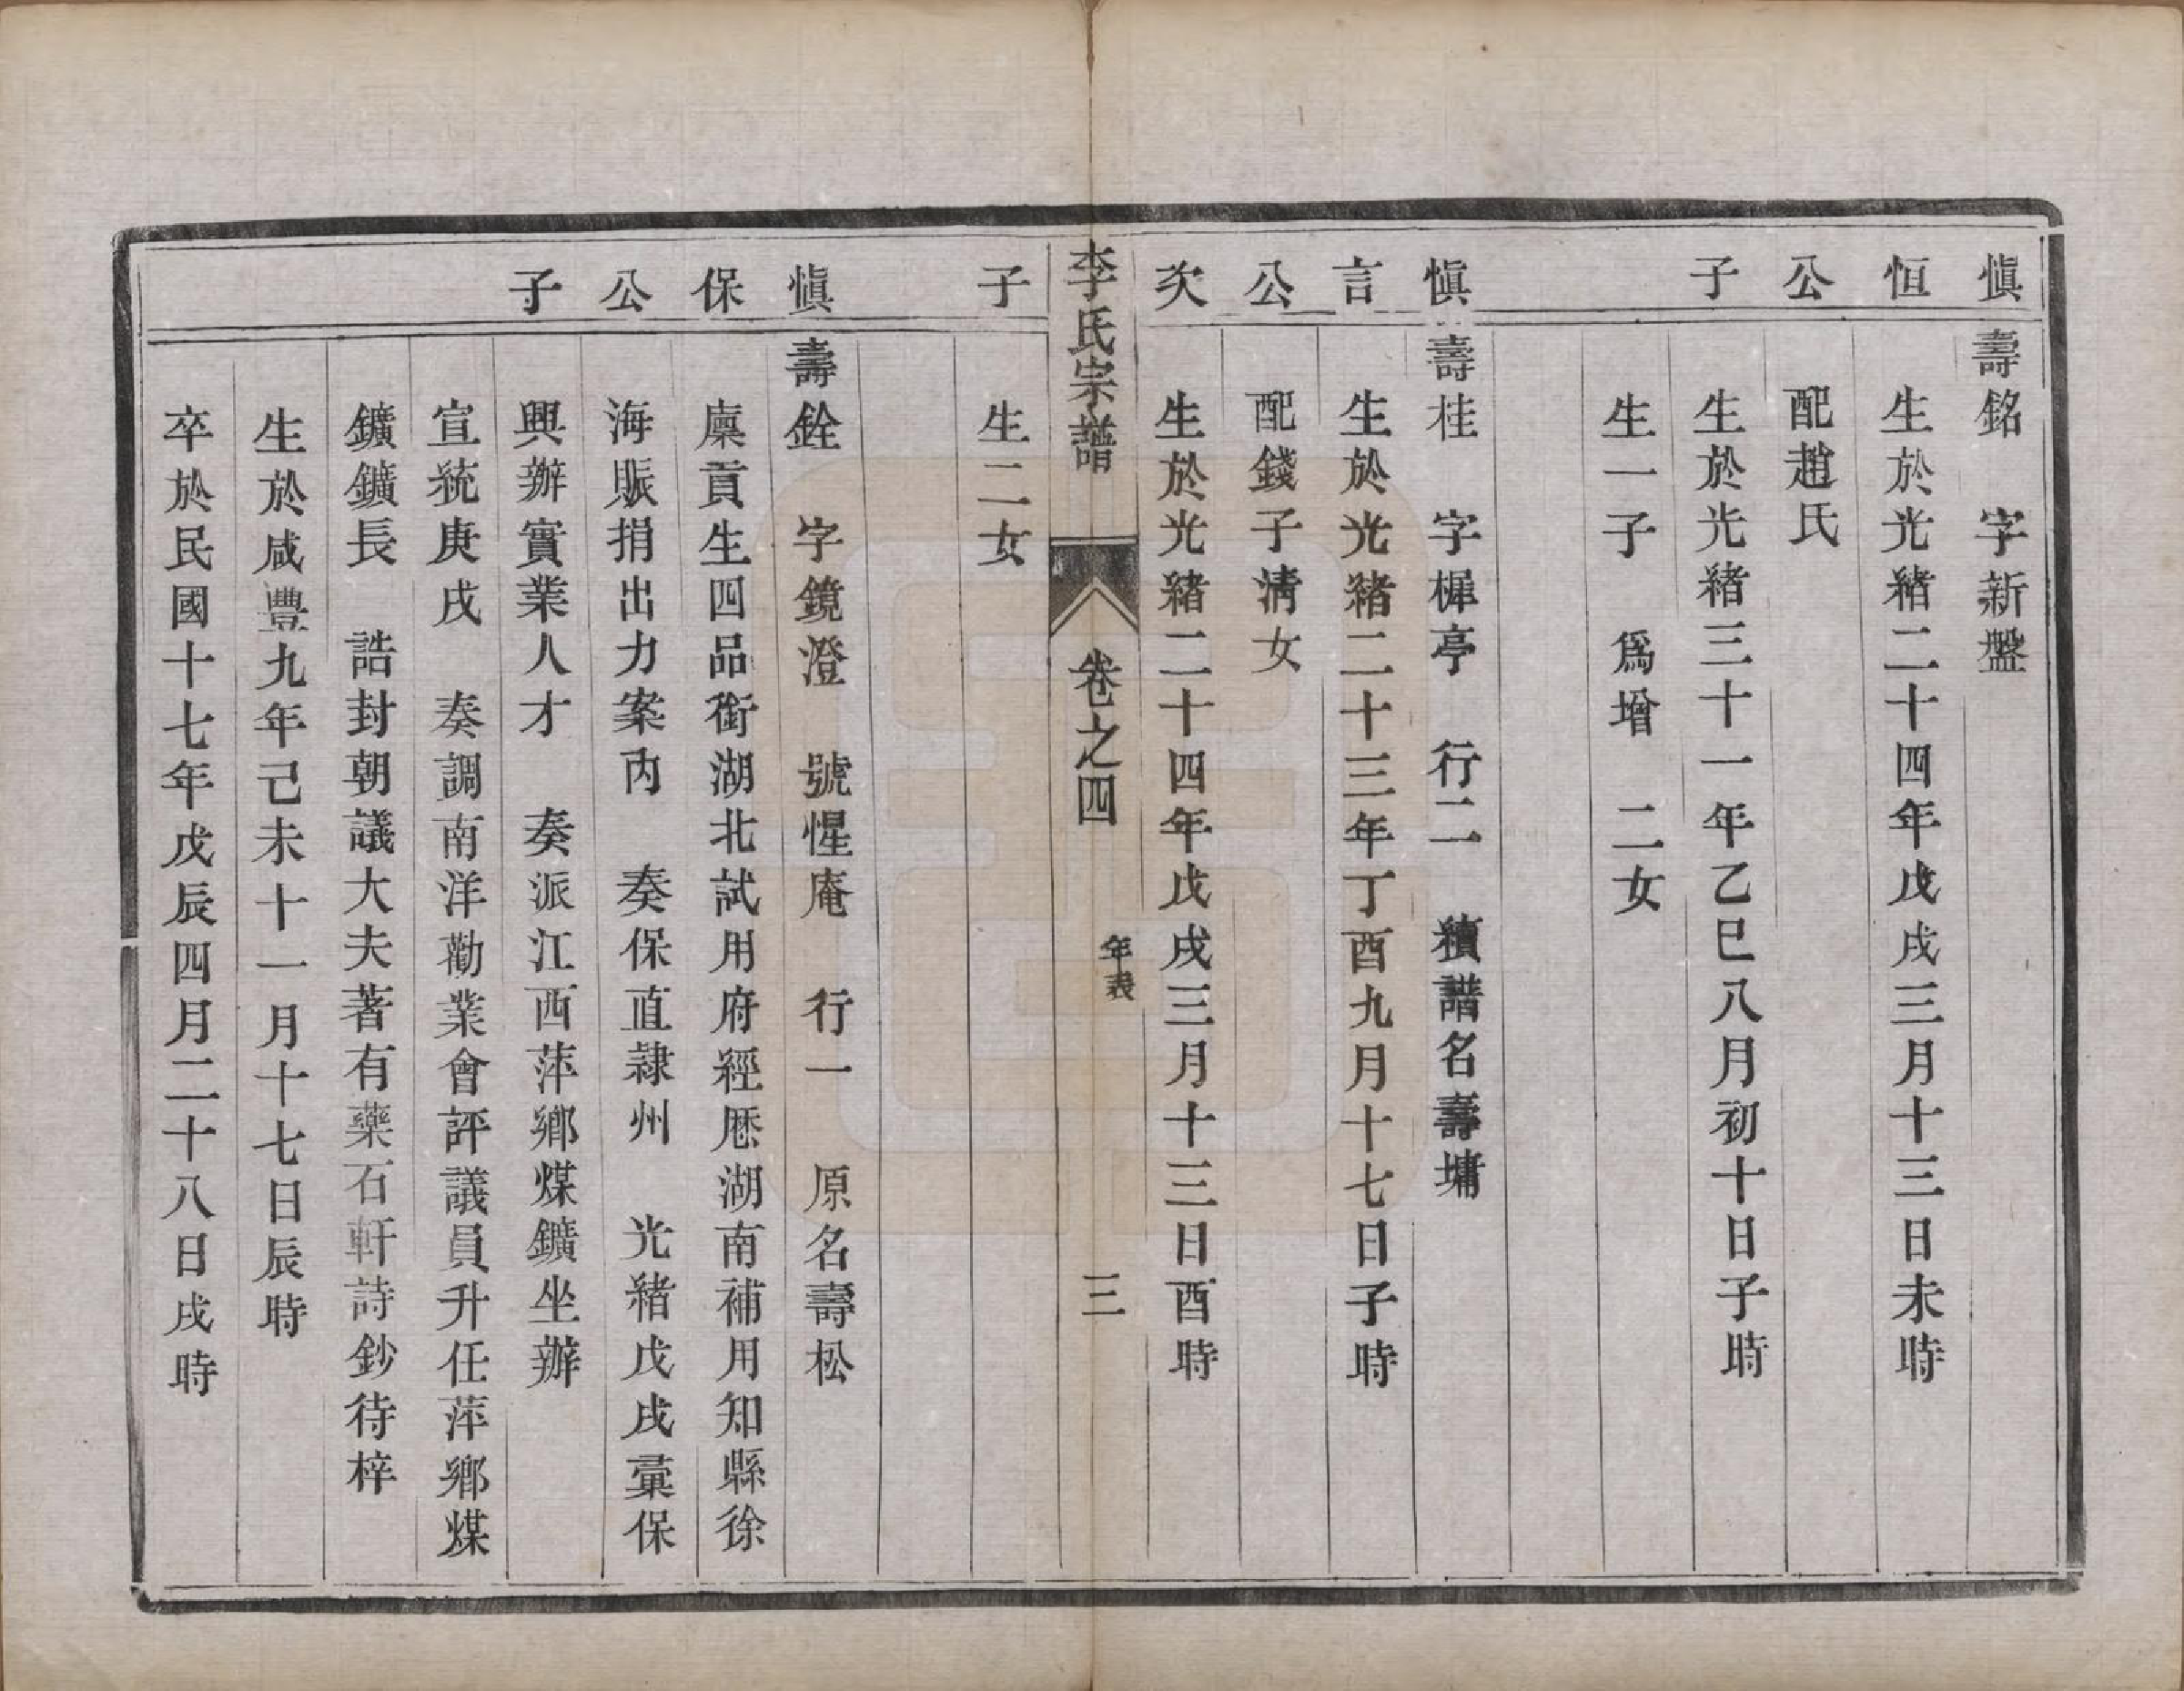 愼恒公子
壽銘　字新盤
生於光緒二十四年戊戌三月十三日未時
配趙氏
生於光緒三十一年乙巳八月初十日子時
生一子　爲增　二女
愼言公次子
壽桂　字樨亭　行二　續譜名壽墉
生於光緒二十三年丁酉九月十七日子時
配錢子清女
生於光緒二十四年戊戌三月十三日酉時
李氏宗譜　卷之四　年表　三
生二女
愼保公子
壽銓　字鏡澄　號惺庵　行一　原名壽松
廩貢生四品銜湖北試用府經厯湖南補用知縣徐
海賑捐出力案內　奏保直隷州　光緒戊戌彙保
興辦實業人才　奏派江西萍鄉煤鑛坐辦
宣統庚戌　奏調南洋勸業會評議員升任萍鄉煤
鑛鑛長　誥封朝議大夫著有藥石軒詩鈔待梓
生於咸豐九年己未十一月十七日辰時
卒於民國十七年戊辰四月二十八日戌時